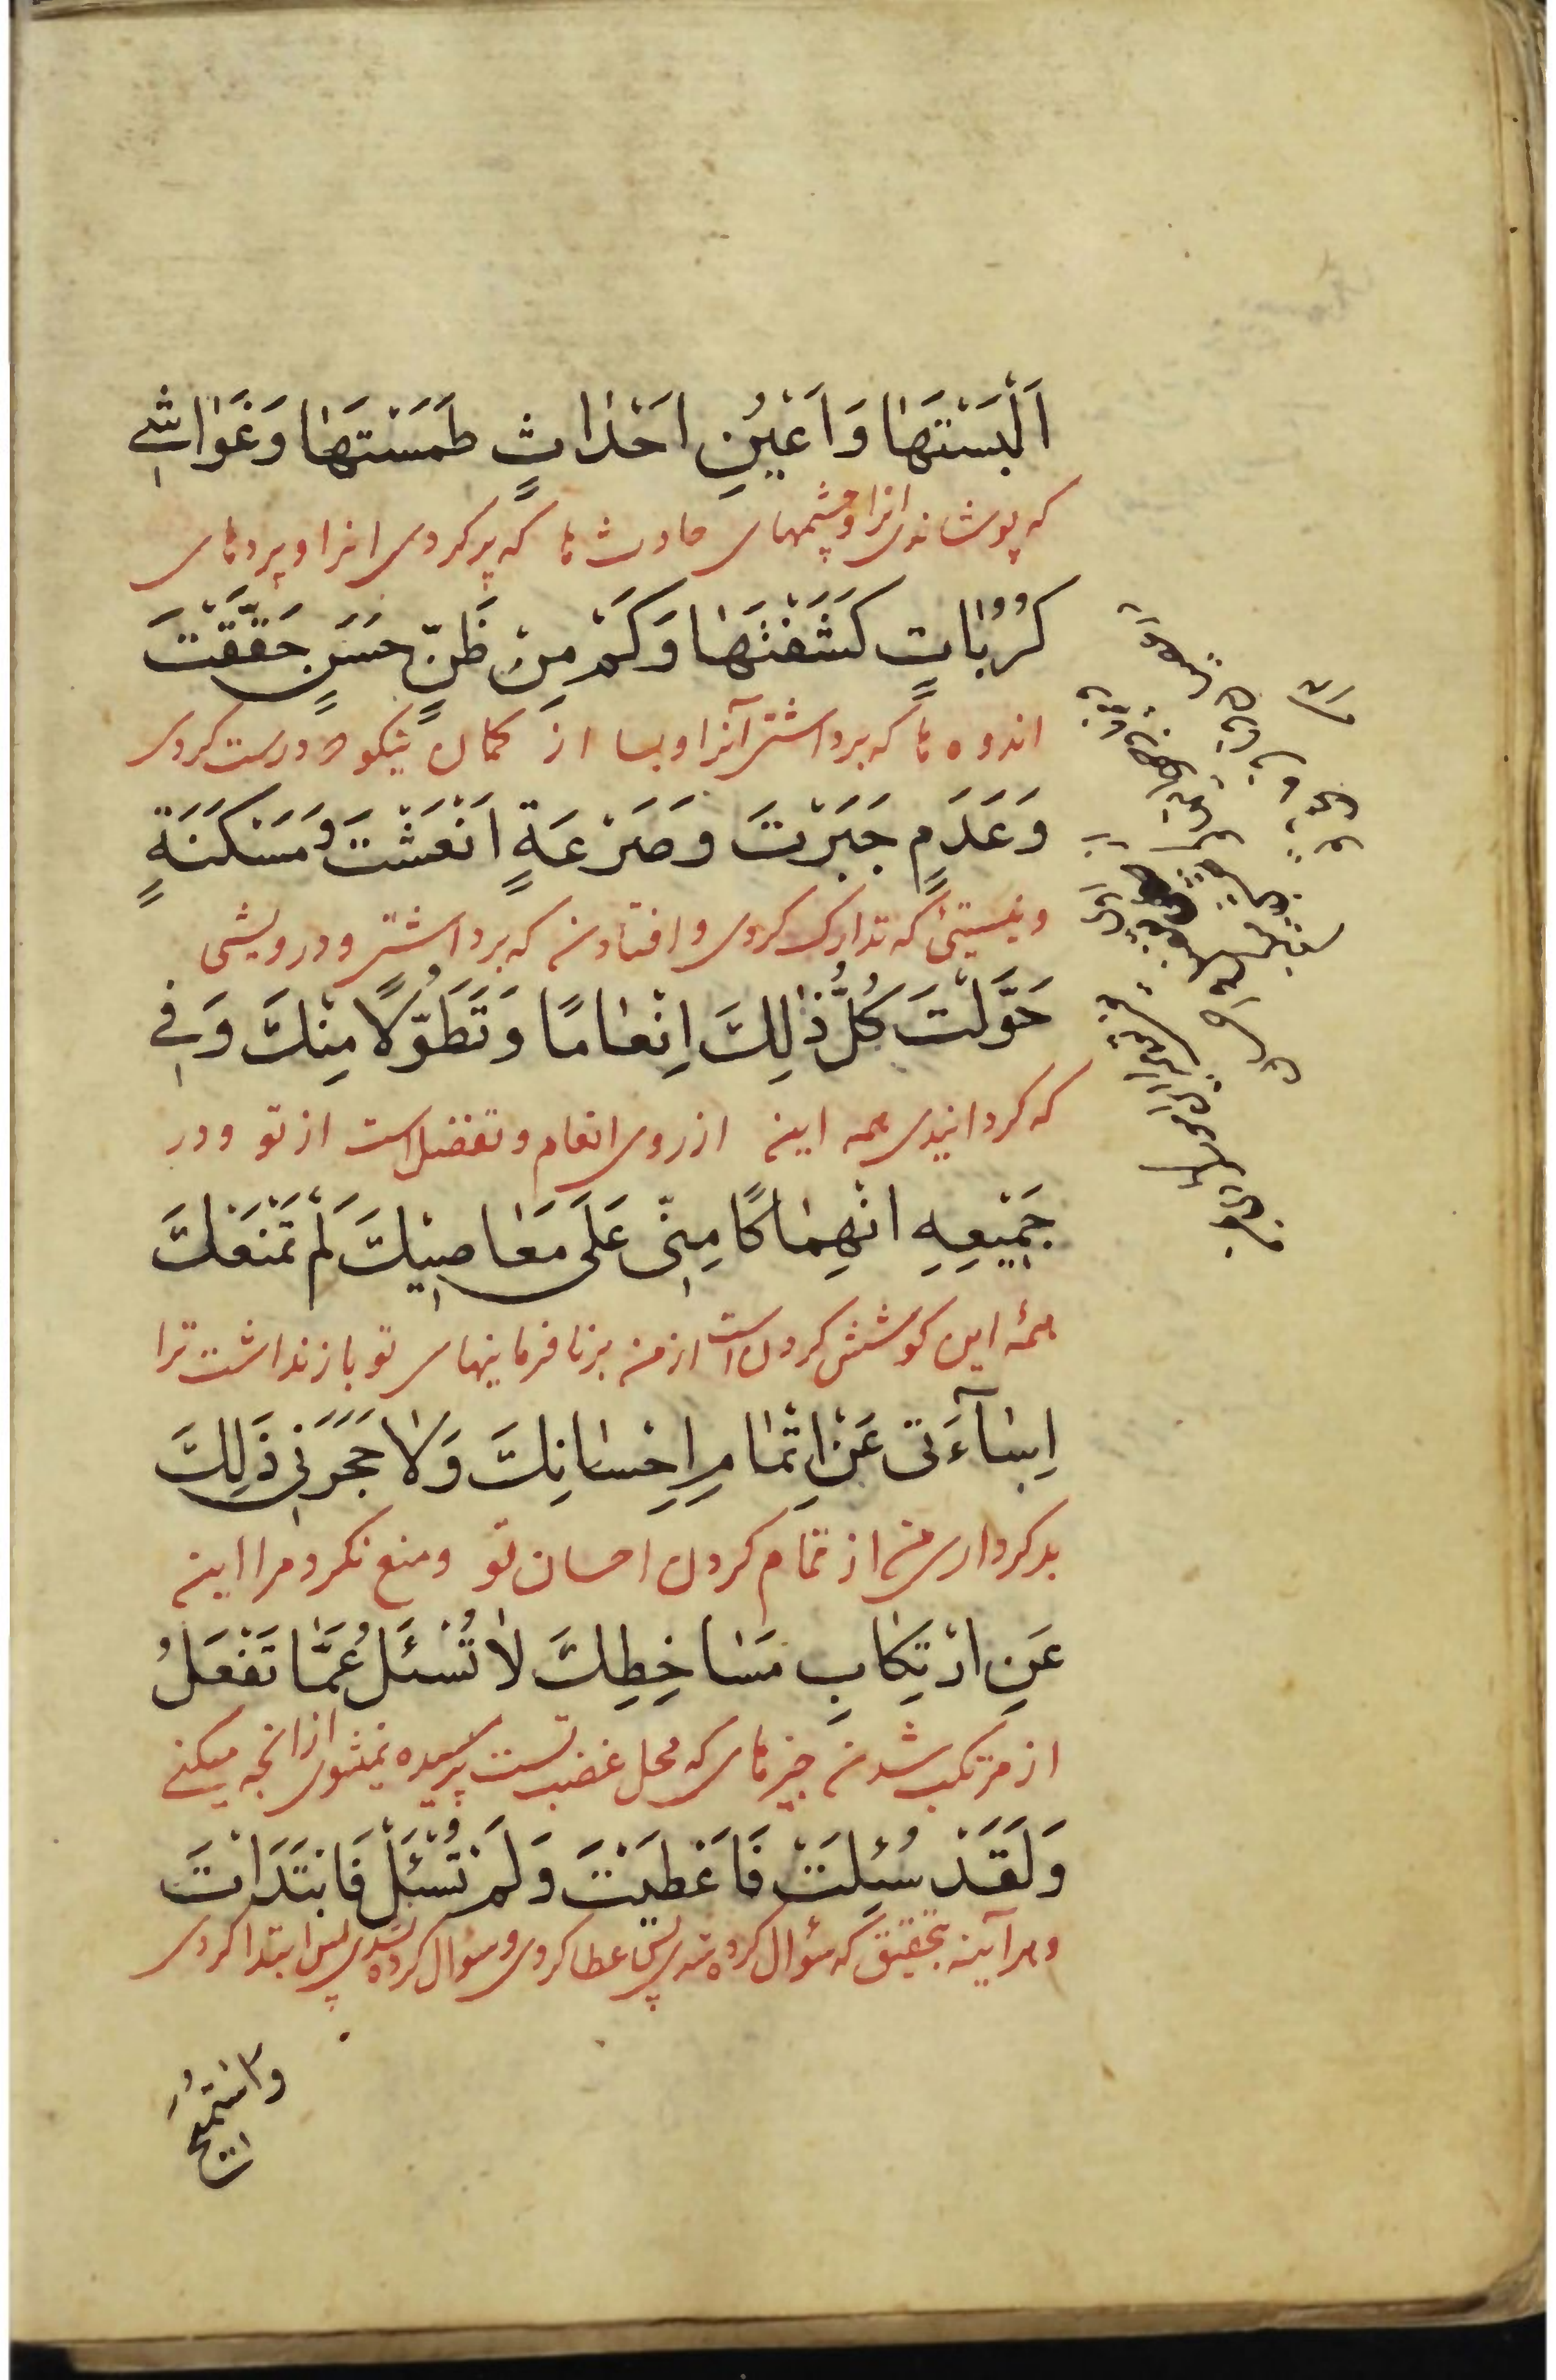 اَلْبَسْتَهٰا وَ اَعْیُنِ اَحْدٰاثٍ طَمَسْتَهٰا وَ غَوٰاشِی
که پوشاندی انرا و چشمهای حادث ها که پر کردی انرا و پردهای
کُرُبٰاتٍ کَشَفْتَهٰا وَ کَمْ مِنْ ظَنٍّ حَسَنٍ حَقَّقْتَ
اندوه ها که برداشتی آنرا و بسا از کمان نیکو که درست کردی
وَ عَدَمٍ جَبَرْتَ وَ صَرْعَةٍ اَنْعَشْتَ وَ مَسْکَنَةٍ
و نیستیی که تدارک کردی و افتادن که برداشتی و درویشی
حَوَّلْتَ کُلُّ ذٰلِکَ اِنْعٰامًا وَ تَطَوُّلًا مِنْکَ وَ فِی
که کردانیدی همه این از روی انعام و تفضل است از تو و در
جَمِیْعِهِ انْهِمٰاکًا مِنِّی عَلَی مَعٰاصِیْکَ لَمْ تَمْنَعْکَ
همۀ این کوشش کردن است از من بر نافرمانیهای تو باز نداشت ترا
اِسٰآءَتی عَنْ اِتْمٰامِ اِحْسٰانِکَ وَلٰا حَجَرَنِی ذَلِکَ
بد کرداری من از تمام کردن احسان تو و منع نکرد مرا این
عَنِ ارْتِکٰابِ مَسٰاخِطِکَ لٰا تُسْئَلُ عَمَّا تَفْعَلُ
از مرتکب شدن چیزهای که محل غضب تست پرسیده نمیشوی از انچه میکنی
وَلَقَدْ سُئِلْتَ فَاَعْطَیْتَ وَلَمْ تُسْئَلْ فَابْتَدَاْتَ
و هرآینه بتحقیق که سؤال کرده شدی پس عطا کردی و سؤال کرده نشدی پس ابتدا کردی
و استمیح